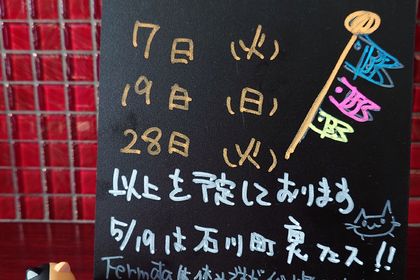 7日 (火)
19日 (日)
28日 (火)
以上を予定しております
5/19は石川町裏フェス!!
Fermata